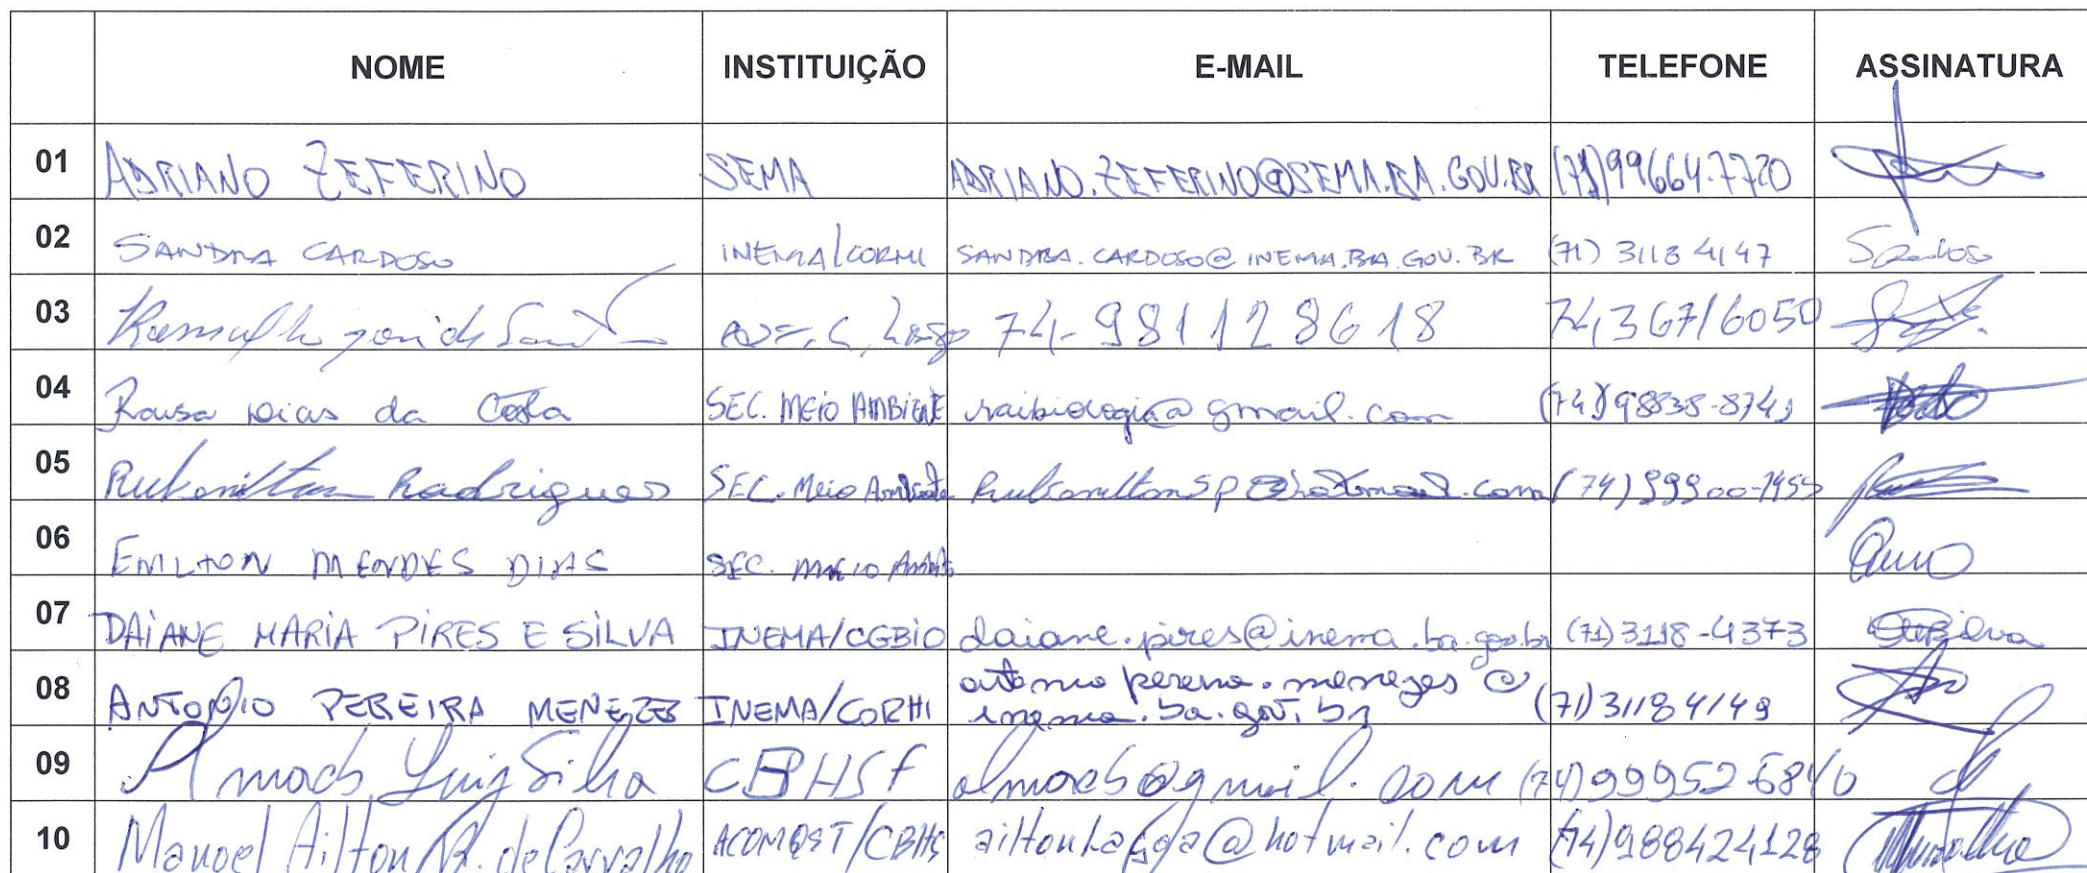 NOME INSTITUIÇÃO E-MAIL TELEFONE ASSINATURA
01 ADRIANO ZEFERINO SEMA ADRIANO.ZEFERINO@SEMA.BA.GOV.BR (71)99664-7720
02 SANDRA CARDOSO INEMA/CORHI SANDRA.CARDOSO@INEMA.BA.GOV.BR (71) 3118 4147
03 74-981128618 74,36716050
04 Dias da Costa SEC. MEIO AMBIENTE raibiologia@gmail.com
05 Rubenilton Rodrigues SEC. Meio Ambiente
06 EMILTON MENDES DIAS SEC. MEIO
07 DAIANE MARIA PIRES E SILVA INEMA/CGBIO daiane.pires@inema.ba.gov.br (71) 3118-4373
08 ANTONIO PEREIRA MENEZES INEMA/CORHI antonio pereira.menezes@ (71) 31184149
inema.ba.gov.br
09 Almacks Luiz Silva CBHSF almacks@gmail.com (74)999526840
10 Manoel Ailton de Carvalho (74)988424128